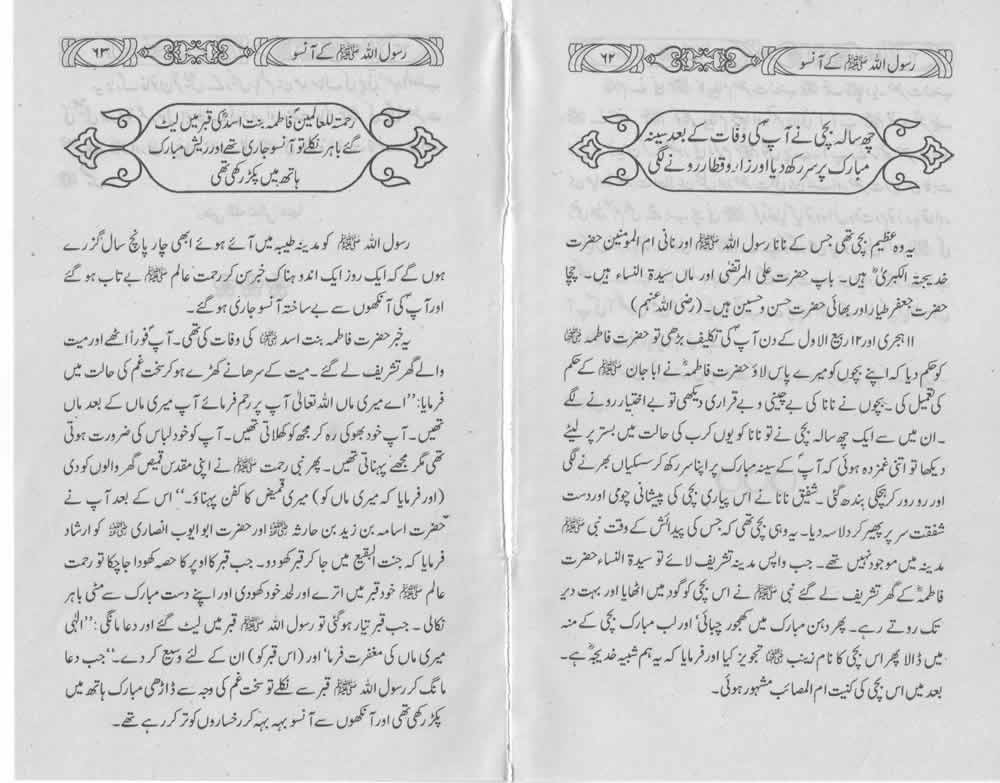 رسول اللہ ﷺ کے آنسو
۶۲
چھ سالہ بچی نے آپؐ کی وفات کے بعد سینہ
مبارک پر سر رکھ دیا اور زار و قطار رونے لگی
یہ وہ عظیم بچی تھی جس کے نانا رسول اللہ ﷺ اور نانی ام المومنین حضرت
خدیجۃ الکبریٰؓ ہیں۔ باپ حضرت علی المرتضیٰ اور ماں سیدۃ النساء ہیں۔ چچا
حضرت جعفر طیار اور بھائی حضرت حسن و حسین ہیں۔ (رضی اللہ عنہم)
۱۱ ہجری اور ۱۲ ربیع الاول کے دن آپؐ کی تکلیف بڑھی تو حضرت فاطمہ ؓ
کو حکم دیا کہ اپنے بچوں کو میرے پاس لاؤ حضرت فاطمہؓ نے ابا جان ﷺ کے حکم
کی تعمیل کی۔ بچوں نے نانا کی بے چینی و بے قراری دیکھی تو بے اختیار رونے لگے
۔ ان میں سے ایک چھ سالہ بچی نے تو نانا کو یوں کرب کی حالت میں بستر پر لیٹے
دیکھا تو اتنی غمزدہ ہوئی کہ آپؐ کے سینہ مبارک پر اپنا سر رکھ کر سسکیاں بھرنے لگی
اور رو رو کر ہچکی بندھ گئی۔ شفیق نانا نے اس پیاری بچی کی پیشانی چومی اور دست
شفقت سر پر پھیر کر دلاسہ دیا۔ یہ وہی بچی تھی کہ جس کی پیدائش کے وقت نبی ﷺ
مدینہ میں موجود نہیں تھے۔ جب واپس مدینہ تشریف لائے تو سیدۃ النساء حضرت
فاطمہؓ کے گھر تشریف لے گئے نبی ﷺ نے اس بچی کو گود میں اٹھایا اور بہت دیر
تک روتے رہے۔ پھر دہن مبارک میں کھجور چبائی‘ اور لب مبارک بچی کے منہ
میں ڈالا پھر اس بچی کا نام زینب ؓ تجویز کیا اور فرمایا کہ یہ ہم شبیہ خدیجہؓ ہے۔
بعد میں اس بچی کی کنیت ام المصائب مشہور ہوئی۔
رسول اللہ ﷺ کے آنسو
۶۳
رحمۃ للعالمینؐ فاطمہ بنت اسدؓ کی قبر میں لیٹ
گئے باہر نکلے تو آنسو جاری تھے اور ریش مبارک
ہاتھ میں پکڑ رکھی تھی
رسول اللہ ﷺ کو مدینہ طیبہ میں آئے ہوئے ابھی چار پانچ سال گزرے
ہوں گے کہ ایک روز ایک اندوہناک خبر سن کر رحمت عالم ﷺ بے تاب ہو گئے
اور آپؐ کی آنکھوں سے بے ساختہ آنسو جاری ہو گئے۔
یہ خبر حضرت فاطمہ بنت اسد ؓ کی وفات کی تھی۔ آپؐ فوراً اٹھے اور میت
والے گھر تشریف لے گئے۔ میت کے سرھانے کھڑے ہو کر سخت غم کی حالت میں
فرمایا: ’’اے میری ماں اللہ تعالیٰ آپ پر رحم فرمائے آپ میری ماں کے بعد ماں
تھیں۔ آپ خود بھوکی رہ کر مجھ کو کھلاتی تھیں۔ آپ کو خود لباس کی ضرورت ہوتی
تھی مگر مجھے پہناتی تھیں۔ پھر نبی رحمت ﷺ نے اپنی مقدس قمیض گھر والوں کو دی
(اور فرمایا کہ میری ماں کو) میری قمیض کا کفن پہناؤ۔‘‘ اس کے بعد آپ نے
حضرت اسامہ بن زید بن حارثہ ؓ اور حضرت ابو ایوب انصاری ؓ کو ارشاد
فرمایا کہ جنت البقیع میں جا کر قبر کھودو۔ جب قبر کا اوپر کا حصہ کھودا جا چکا تو رحمت
عالم ﷺ خود قبر میں اترے اور لحد خود کھودی اور اپنے دست مبارک سے مٹی باہر
نکالی۔ جب قبر تیار ہو گئی تو رسول اللہ ﷺ قبر میں لیٹ گئے اور دعا مانگی: ’’الٰہی
میری ماں کی مغفرت فرما‘ اور (اس قبر کو) ان کے لئے وسیع کر دے۔‘‘ جب دعا
مانگ کر رسول اللہ ﷺ قبر سے نکلے تو سخت غم کی وجہ سے ڈاڑھی مبارک ہاتھ میں
پکڑ رکھی تھی اور آنکھوں سے آنسو بہہ بہہ کر رخساروں کو تر کر رہے تھے۔